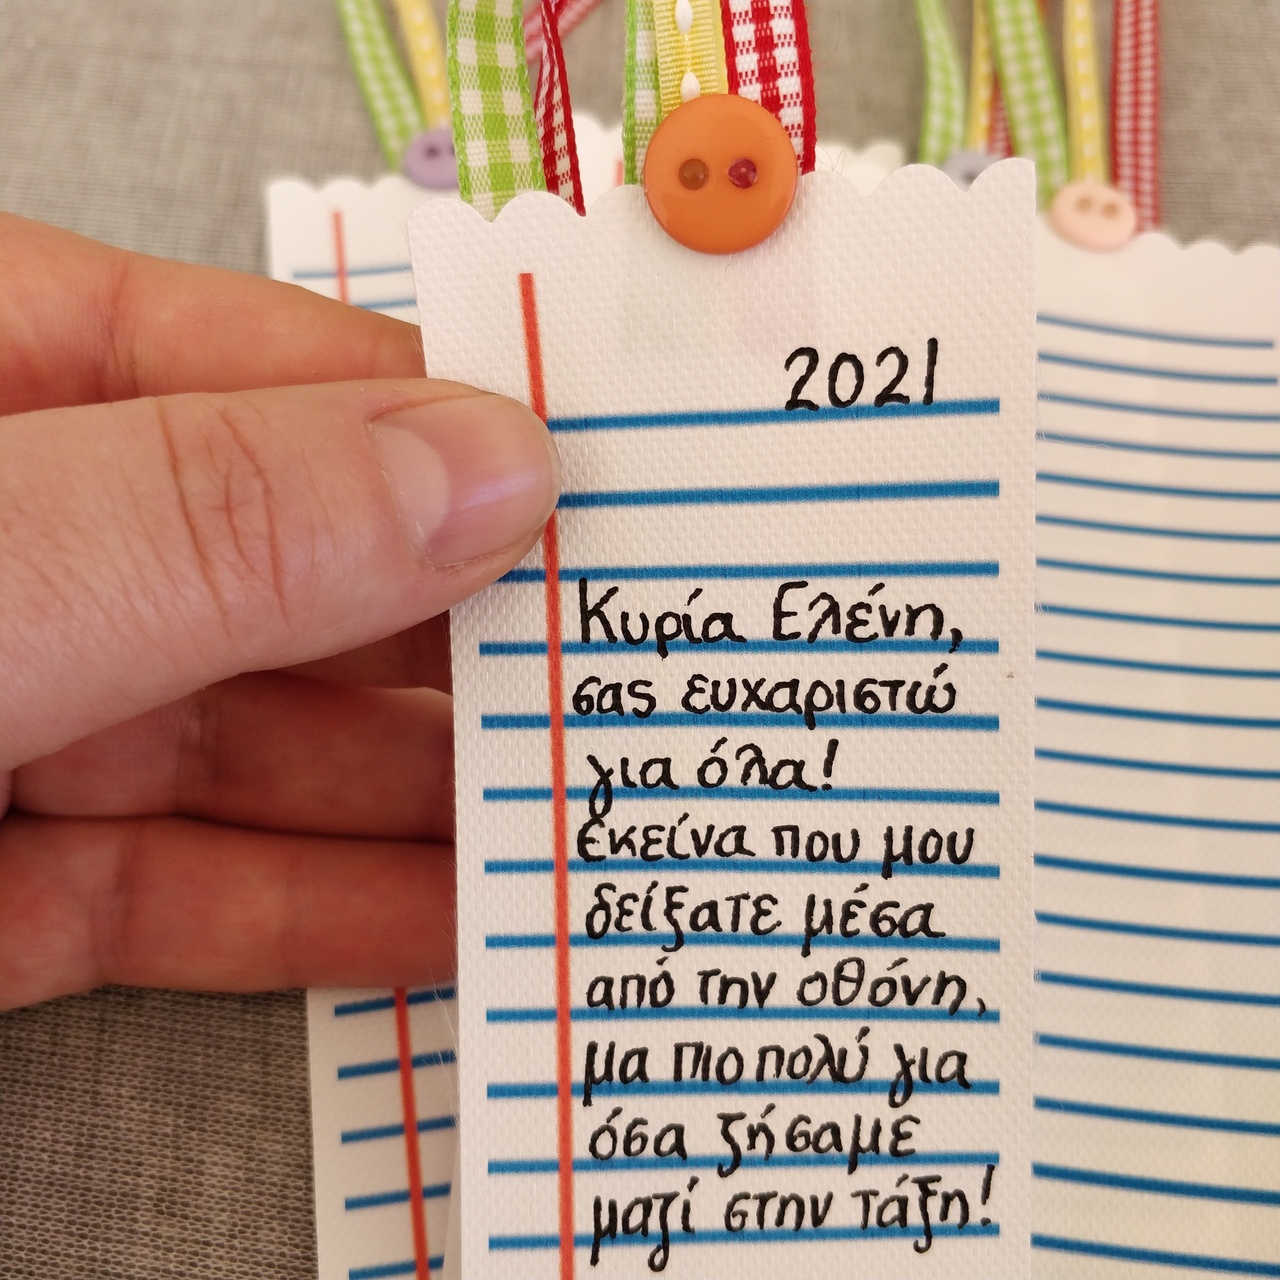 2021
Κυρία Ελένη,
σας ευχαριστώ
για όλα!
Εκείνα που μου
δείξατε μέσα
από την οθόνη,
μα πιο πολύ για
όσα ζήσαμε
μαζί στην τάξη!